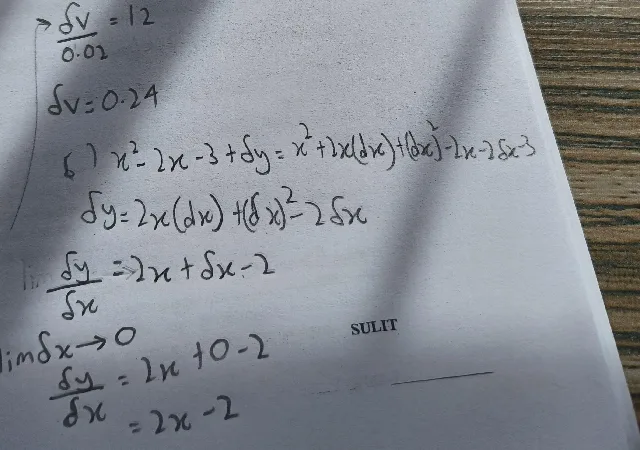 → δv/0.02 = 12
δv = 0.24
6) x² - 2x - 3 + δy = x² + 2x(dx) + (δx)² - 2x - 2δx - 3
δy = 2x(dx) + (δx)² - 2δx
δy/δx = 2x + δx - 2
lim δx → 0
SULIT
δy/δx = 2x + 0 - 2
= 2x - 2